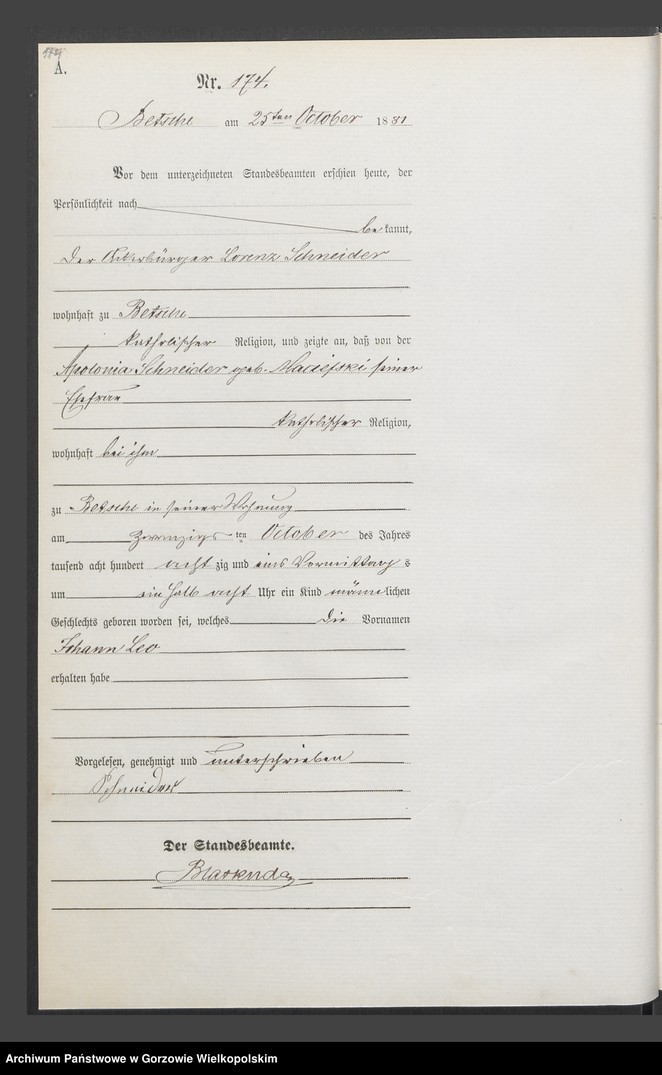 174
A.
Nr. 174.
Betsche am 25ten October 1881
Vor dem unterzeichneten Standesbeamten erschien heute, der
Persönlichkeit nach
bekannt,
der Ackerbürger Lorenz Schneider
wohnhaft zu Betsche
katholischer Religion, und zeigte an, daß von der
Apolonia Schneider geb. Maciejski seiner
Ehefrau
katholischer Religion,
wohnhaft bei ihm
zu Betsche in seiner Wohnung
am zwanzigsten October des Jahres
tausend acht hundert achtzig und eins Vormittags
um ein halb acht Uhr ein Kind männlichen
Geschlechts geboren worden sei, welches die Vornamen
Johann Leo
erhalten habe
Vorgelesen, genehmigt und unterschrieben
Schneider
Der Standesbeamte.
Archiwum Państwowe w Gorzowie Wielkopolskim